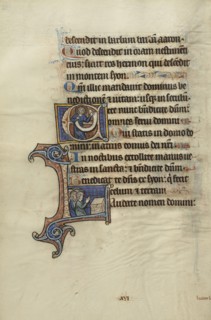 descendit in barbam barbam aaron.
Quod descendit in oram
eius: sicut ros hermon qui descendit
in montem syon.
Qm illic mandauit dominus be
nedictionem et uitam:
Ecce nunc benedicite dnm:
omnes serui domini
Qui statis in domo do
mini: in atriis domus dei nri.
In noctibus extollite manus ue
stras in sancta: et benedicite dnm.
Benedicat te dns ex syon: q fecit
celum et terram
Laudate nomen domini: